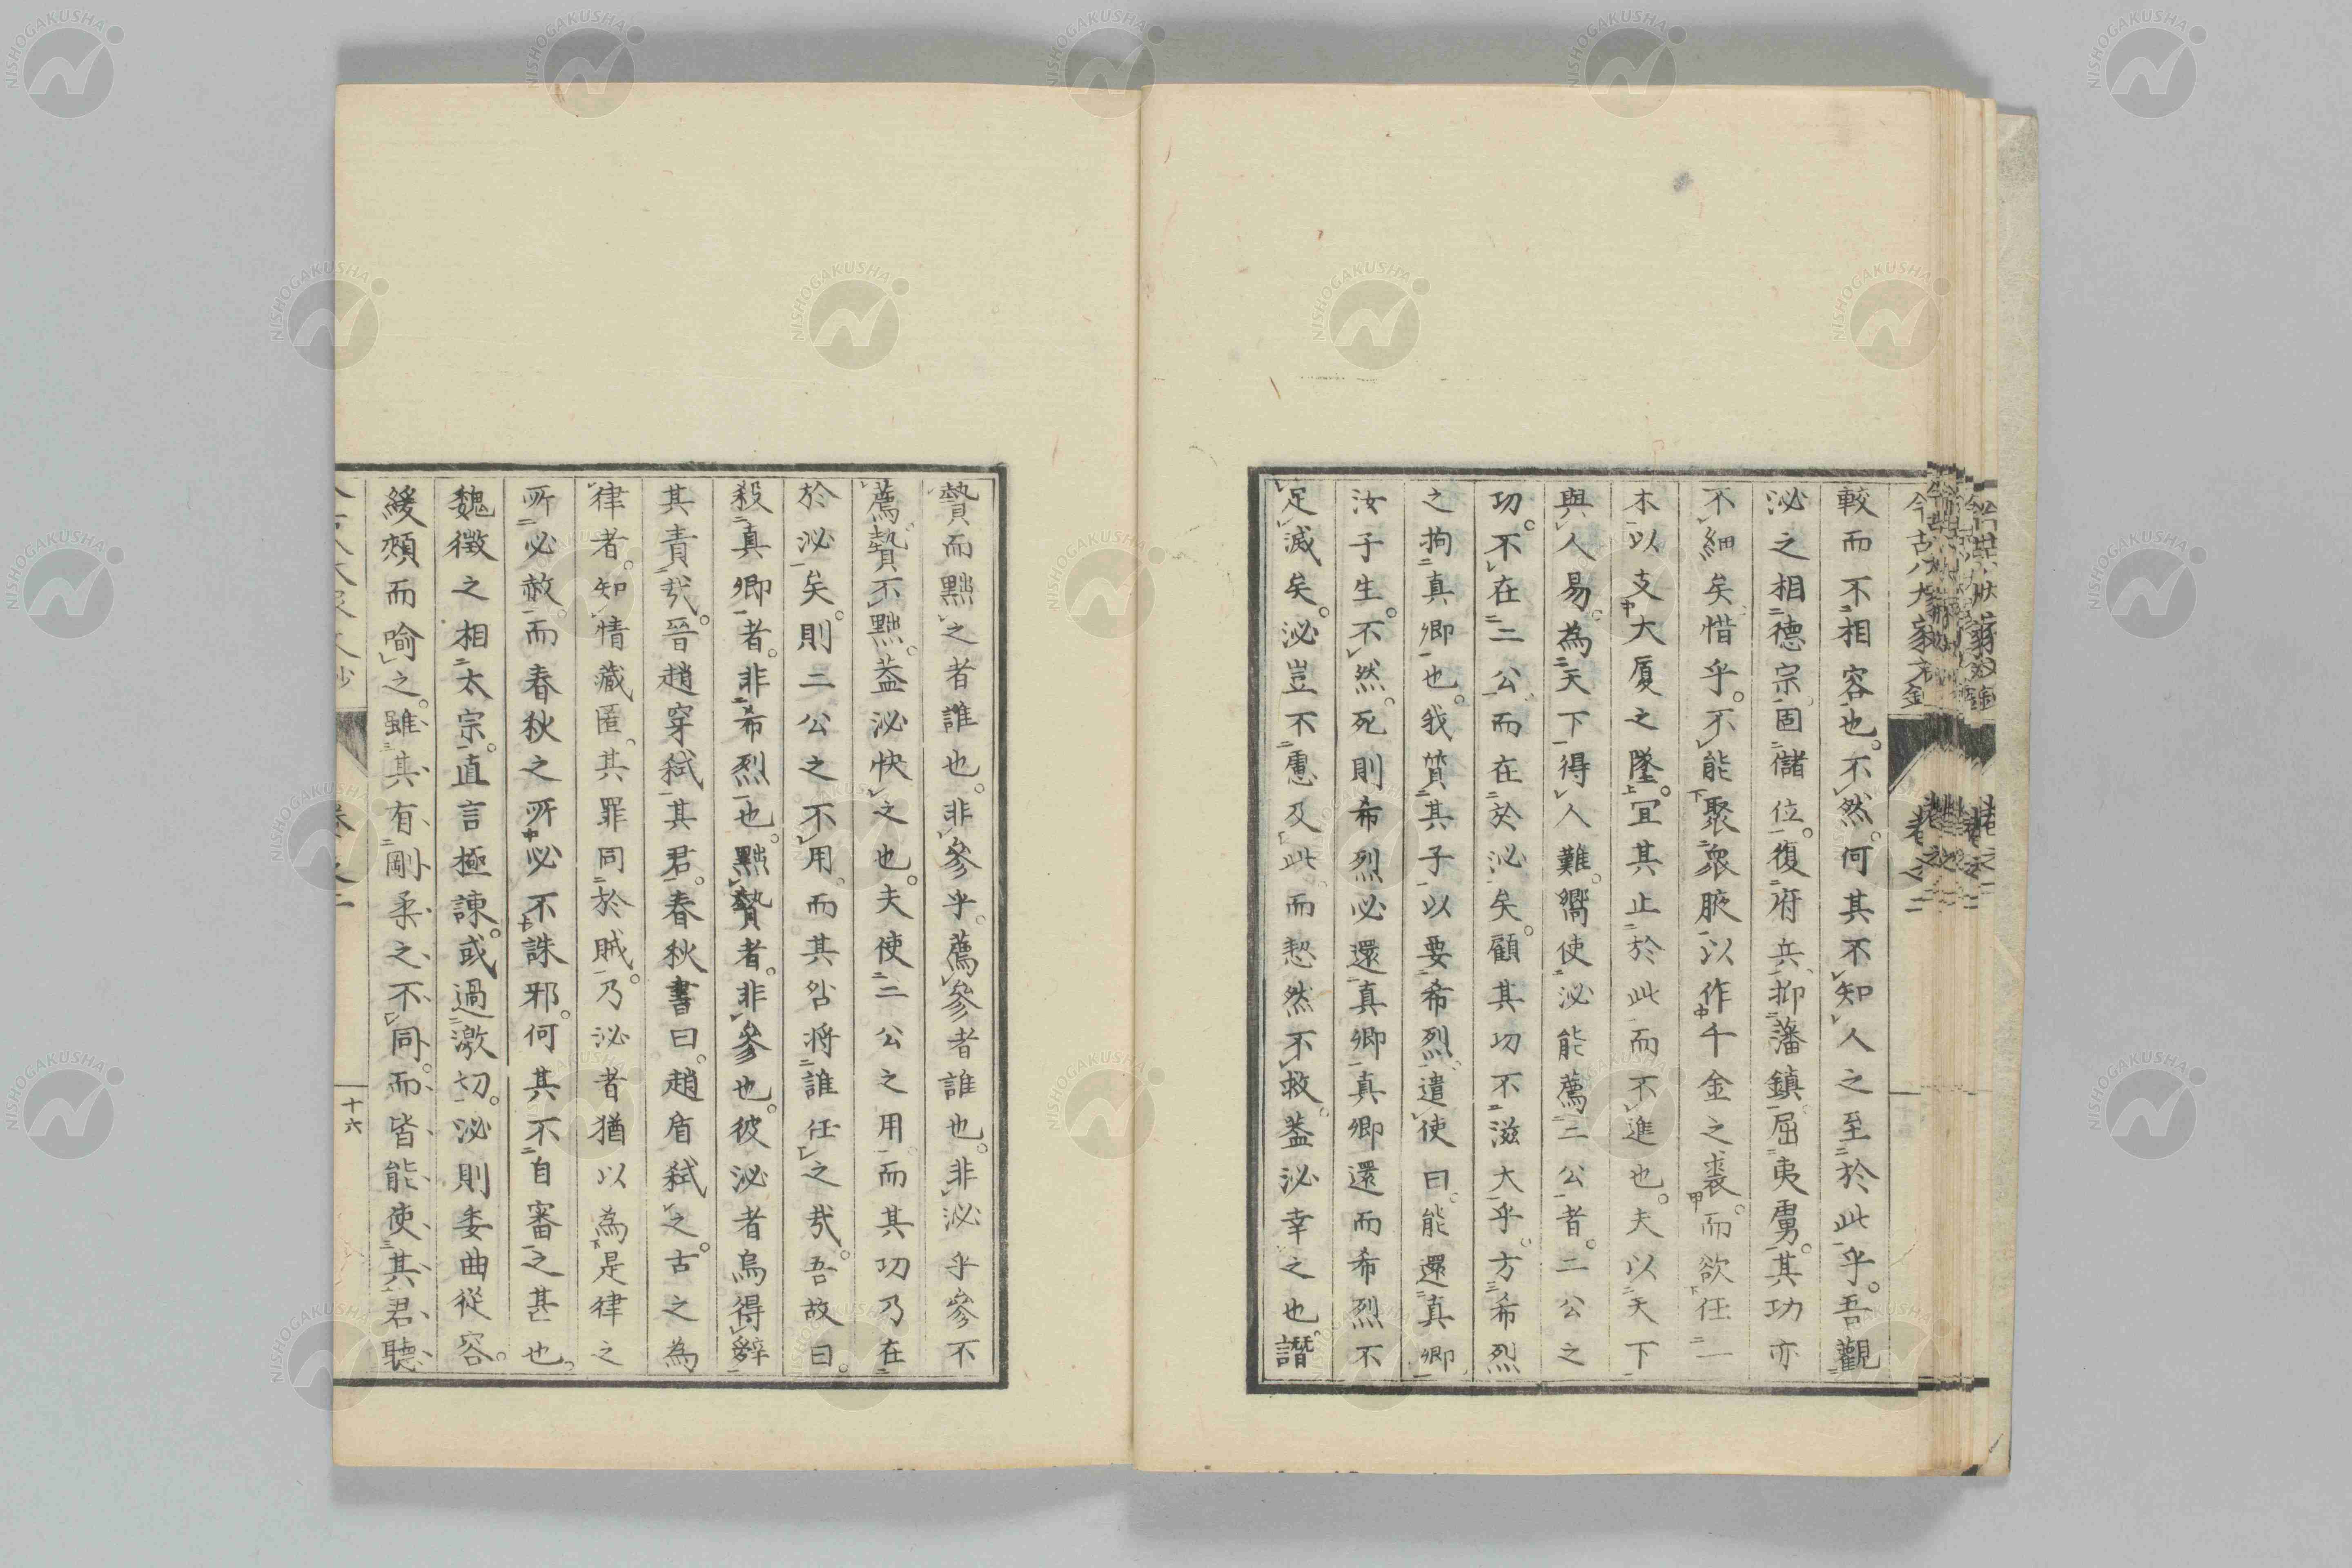 較而不相容也。不然。何其不知人之至於此乎。吾觀
泌之相德宗。固儲位。復府兵。抑藩鎮。屈夷虜。其功亦
不細矣。惜乎。不能聚衆腋以作千金之裘。而欲任一
木以支大厦之墜。宜其止於此而不進也。夫以天下
與人易。為天下得人難。嚮使泌能薦二公者。二公之
功。不在二公。而在於泌矣。顧其功不滋大乎。方希烈
之拘真卿也。我質其子以要希烈。遣使曰。能還真卿
汝子生。不然。死則希烈必還真卿。真卿還而希烈不
足滅矣。泌豈不慮及此。而恝然不救。葢泌幸之也。譖
贄而黜之者誰也。非參乎。薦參者誰也。非泌乎。參不
薦。贄不黜。葢泌快之也。夫使二公之用。而其功乃在
於泌矣。則二公之不用。而其咎將誰任之哉。吾故曰。
殺真卿者。非希烈也。黜贄者。非參也。彼泌者烏得辭
其責哉。晉趙穿弒其君。春秋書曰。趙盾弒之。古之為
律者。知情藏匿。其罪同於賊。乃泌者猶以為是律之
所必赦。而春秋之所必不誅邪。何其不自審之甚也。
魏徵之相太宗。直言極諫。或過激切。泌則委曲從容。
緩頰而喻之。雖其有剛柔之不同。而皆能使其君聽
卷之二
十六